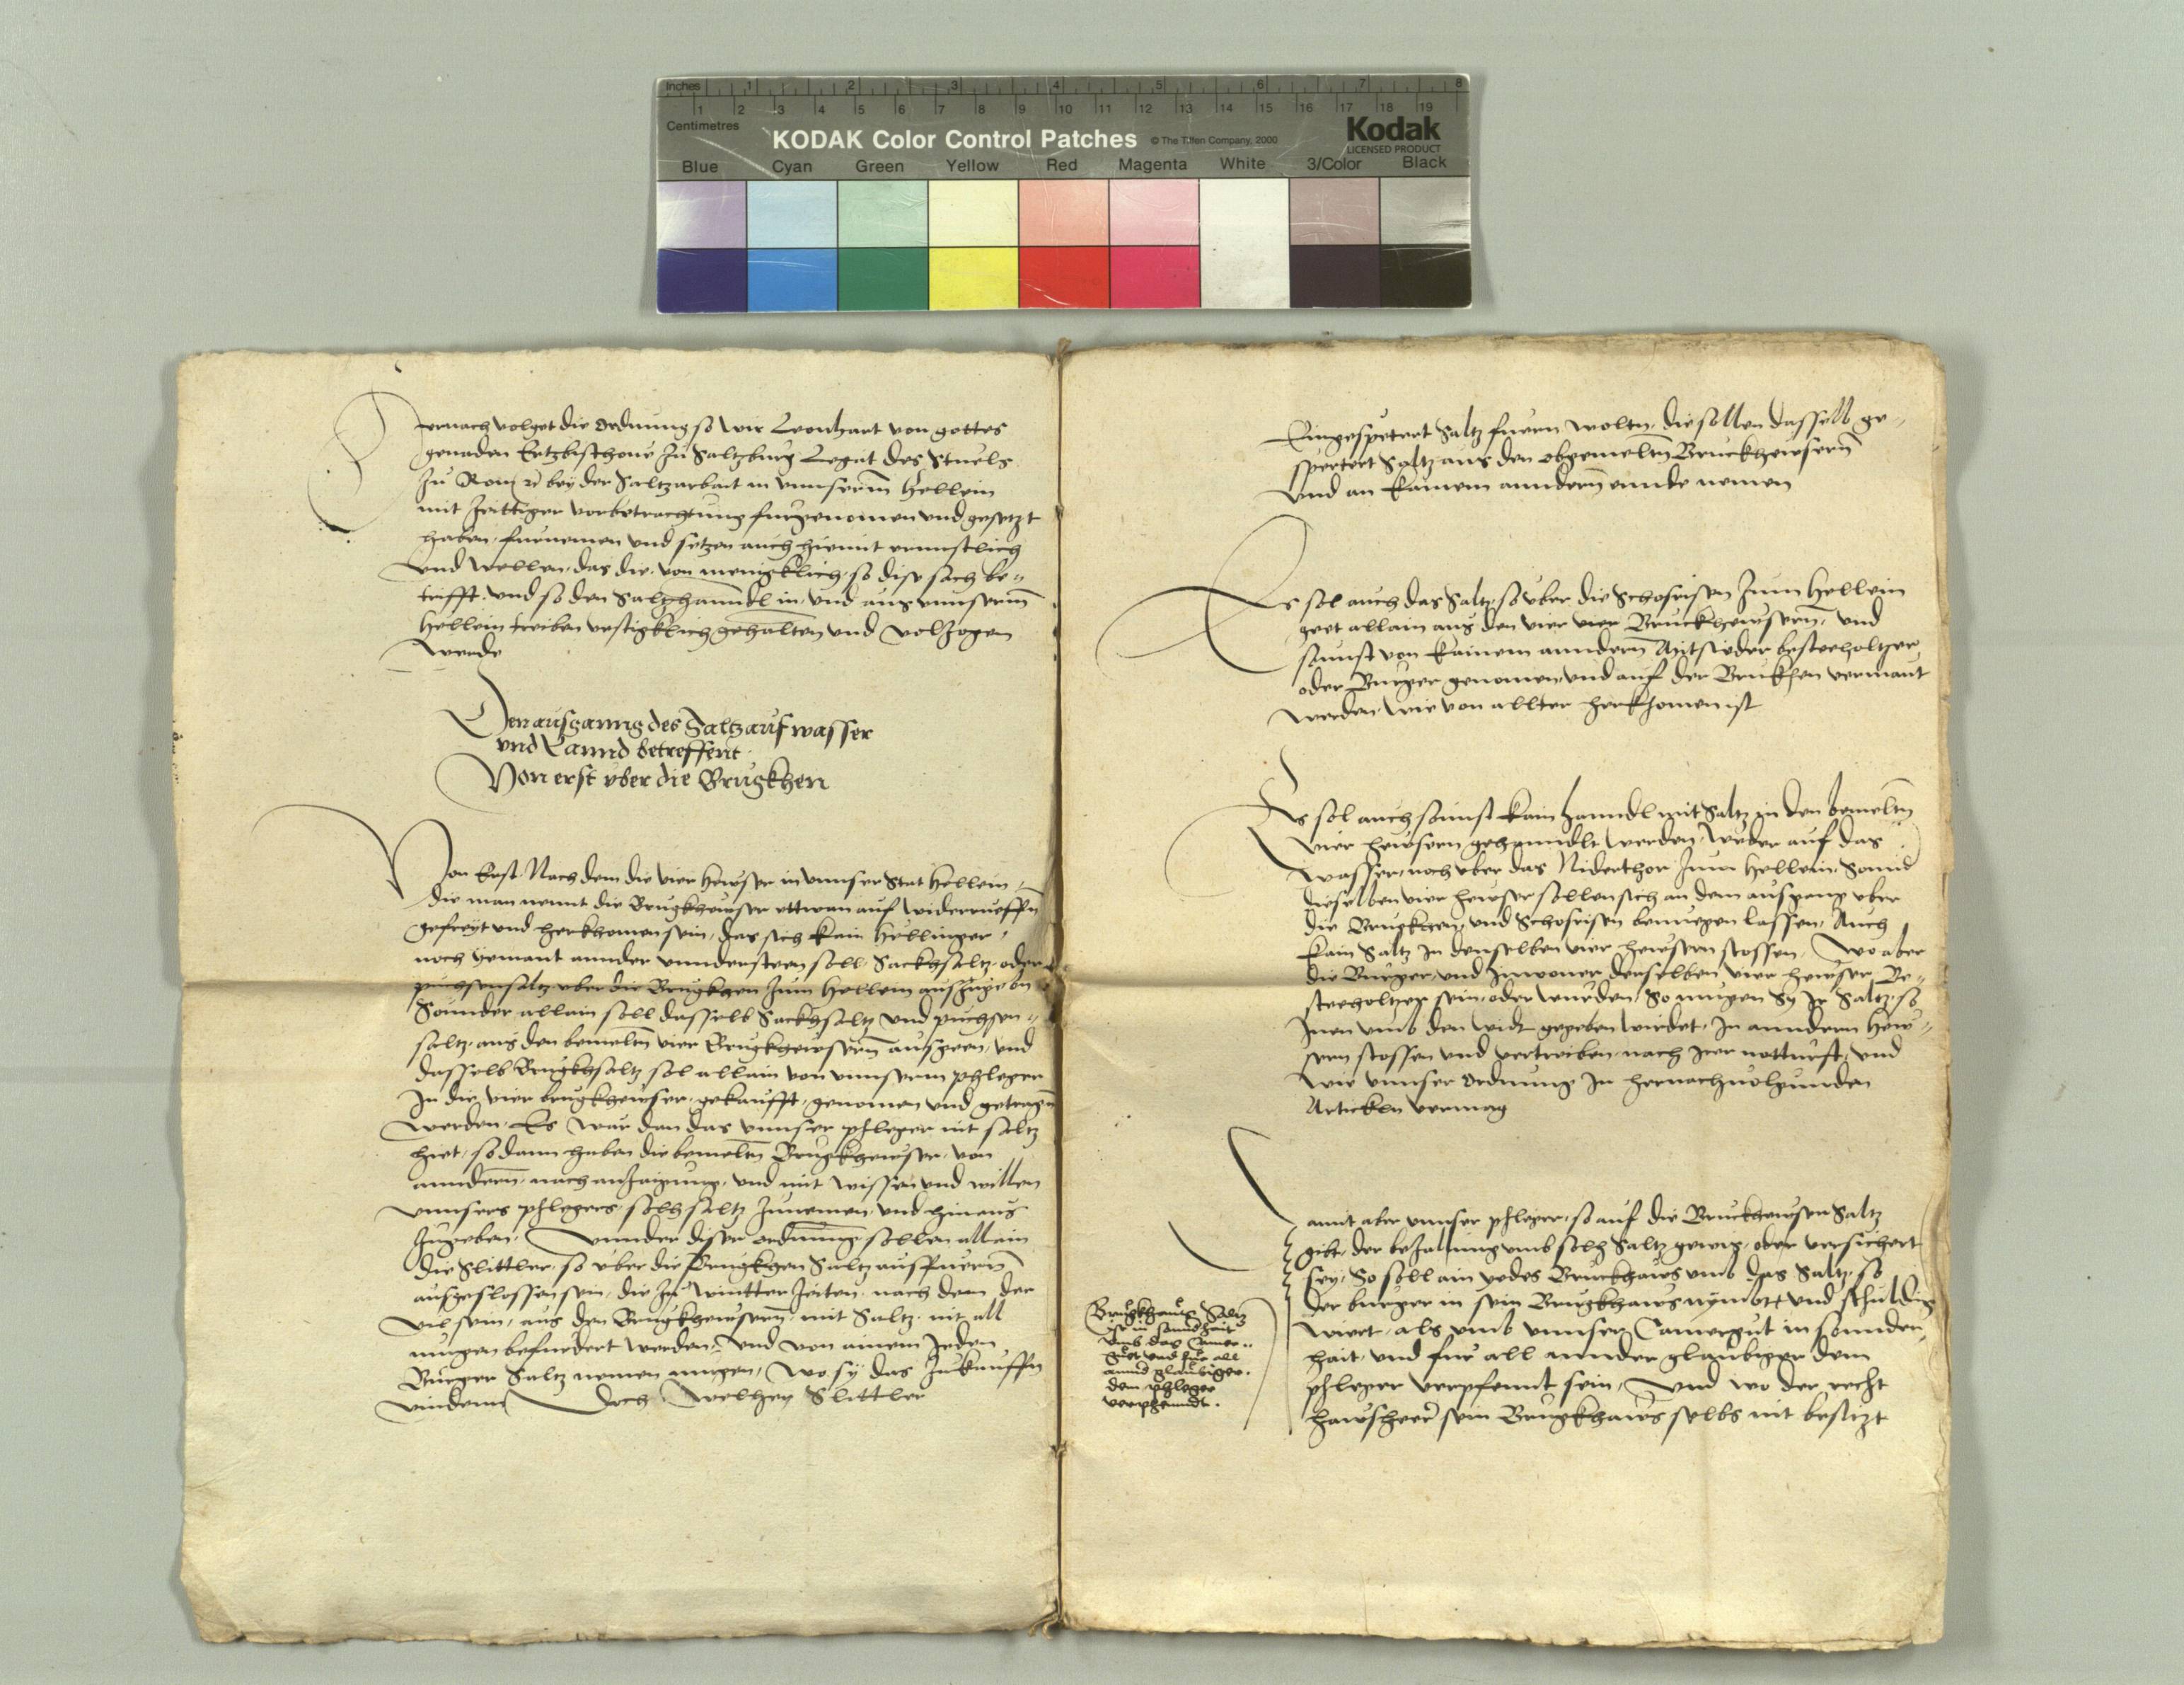 Inches 1 2 3 4 5 6 7 8
1 2 3 4 5 6 7 8 9 10 11 12 13 14 15 16 17 18 19
Centimetres
KODAK Color Control Patches © The Tiffen Company, 2000 Kodak
LICENSED PRODUCT
Blue Cyan Green Yellow Red Magenta White 3/Color Black
Hernach volget die ordnung so wir Leonhart von gottes
genaden Ertzbischoue zu Saltzburg Legat des Stuels
zu Rom rc bey der Saltzarbait in vnnserm Hellein
mit zeittiger vorbetrachtung furgenomen vnd gesetzt
haben, furnemen vnd setzen auch hiemit ernnstlich
vnd wellen, das die, von menigklich, so dise sach be„
trifft, vnd so den Saltzhanndl in, vnd aus vnnserm
Hellein treiben vestigklich gehalten vnd volzogen
werde
Den ausganng des Saltz auf wasser
vnd Lannd betreffent
Von erst vber die Brugkhen
Von Erst. Nach dem die vier hewser in vnnser Stat Hellein,
die man nennt die Brugkhewser ettwan auf widerrueffn
gefreyt vnd herkhomen sein, das sich kain Hellinger,
noch yemant annder vnndersteen soll, Sackhsaltz, oder
puchsensaltz vber die Brugkhen zum Hellein auszugeben
Sonnder allain soll dasselb Sackhsaltz vnd puchsen„
saltz, aus den bemeltn vier Brugkhewsern ausgeen, vnd
dasselb Brugkhsaltz sol allain von vnnserm phleger
In die vier brugkhewser, gekaufft, genomen vnd getragn
werden, Es wär dan das vnnser phleger nit saltz
hiet, so dann haben die bemeltn Brugkhewser, von
anndern, nach anzaigung, vnd mit wissen vnd willen
vnnsers phlegers, solh saltz zunemen, vnd hinaus
zugeben, Vnnder diser ordnung sollen allein
die Slittler, so vber die Brugkhen Saltz ausfuern
ausgeslossen sein, die zu wintter zeiten, nach dem der
vil sein, aus den Brugkhewsern, mit Saltz, nit all
mugen befurdert werden, vnd von ainem yeden
Burger Saltz nemen mugen, wo sy das zukauffn
vinden, Doch, welhen Slittler
Eingespetert Saltz fuern woltn, die sollen dasselb ge„
spertert Saltz aus den obgemeltn Bruckhewsern
vnd an kainem anndern ennde nemen
Es sol auch das Saltz, so vber die Schofrisen zum Hellein
geet allain aus den vier vier Bruckhewsern, vnd
sunst von kainem anndern Mitsieder besteeholtzer
oder Burger genomen, vnd auf der Brukhen vermaut
werden, wie von allter herkhomen ist
Es sol auch sunst kain hanndl mit Saltz in den bemeltn
vier hewsern gehanndlt werden, weder auf das
wasser, noch vber das Niderthor zum Hellein, Sonnd
dieselben vier hewser sollen sich an dem ausgang vber
die Brugkhen, vnd Schofrisen benuegen lassen, Auch
kain Saltz in denselben vier hewsern stossen, Wo aber
die Burger, vnd Inwoner derselben vier hewser Be„
steeholtzer sein, oder wurden, So mugen Sy Ir Saltz, so
Inen vmb den widt gegeben wirdet, In anndern hew„
sern stossen vnd vertreiben, nach irer notturft, vnd
wie vnnser Ordnung In hernachuolgunden
Articken vermag
Damit aber vnnser phleger, so auf die Bruckhewser Saltz
gibt, der bezallung vmb solh Saltz gewis, oder versichert
sey, So soll ain yedes Bruckhaws vmb das Saltz, so
der burger in sein Brugkhaws nymbt, vnd schuldig
wiert, als vmb vnnser Camergut in sonnder„
hait, vnd fur all annder glaubiger dem
phleger verpfennt sein, Vnd wo der recht
hawsherr sein Brugkhaws selbs nit besitzt
Brugkhews Saltz
ist in sannderhait
vmb das Camer„
guet vnd fur all
annd glaubiger.
dem phleger
verphenndt.